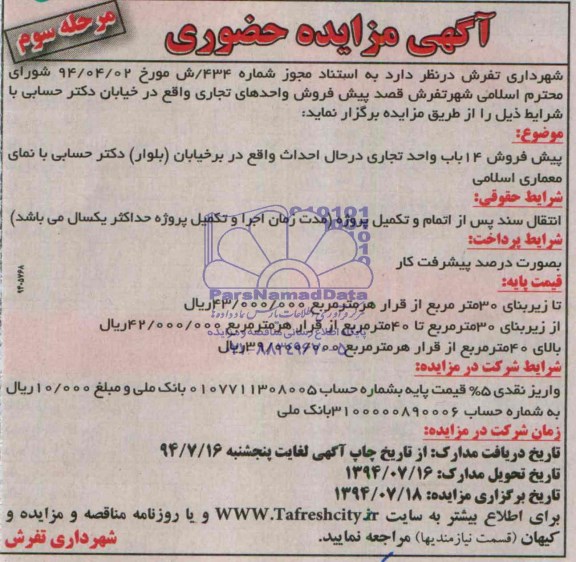 آگهی مزایده حضوری
مرحله سوم
شهرداری تفرش درنظر دارد به استناد مجوز شماره ۴۳۴/ش مورخ ۹۴/۰۴/۰۲ شورای
محترم اسلامی شهرتفرش قصد پیش فروش واحدهای تجاری واقع در خیابان دکتر حسابی با
شرایط ذیل را از طریق مزایده برگزار نماید:
موضوع:
پیش فروش ۱۴باب واحد تجاری درحال احداث واقع در برخیابان (بلوار) دکتر حسابی با نمای
معماری اسلامی
شرایط حقوقی:
انتقال سند پس از اتمام و تکمیل پروژه (مدت زمان اجرا و تکمیل پروژه حداکثر یکسال می باشد)
شرایط پرداخت:
بصورت درصد پیشرفت کار
قیمت پایه:
تا زیربنای ۳۰متر مربع از قرار هرمترمربع ۴۳/۰۰۰/۰۰۰ریال
از زیربنای ۳۰مترمربع تا ۴۰مترمربع از قرار هرمترمربع ۴۲/۰۰۰/۰۰۰ریال
بالای ۴۰مترمربع از قرار هرمترمربع ریال
شرایط شرکت در مزایده:
واریز نقدی ۵% قیمت پایه بشماره حساب ۰۱۰۷۷۱۱۳۰۸۰۰۵ بانک ملی و مبلغ ۱۰/۰۰۰ریال
به شماره حساب ۳۱۰۰۰۰۰۸۹۰۰۰۶بانک ملی
زمان شرکت در مزایده:
تاریخ دریافت مدارک: از تاریخ چاپ آگهی لغایت پنجشنبه ۹۴/۷/۱۶
تاریخ تحویل مدارک: ۱۳۹۴/۰۷/۱۶
تاریخ برگزاری مزایده: ۱۳۹۴/۰۷/۱۸
برای اطلاع بیشتر به سایت WWW.Tafreshcity.ir و یا روزنامه مناقصه و مزایده و
کیهان (قسمت نیازمندیها) مراجعه نمایید.
شهرداری تفرش
۹۴۰۵۷۶۸
ParsNamadData
پایگاه اطلاع رسانی مناقصه و مزایده